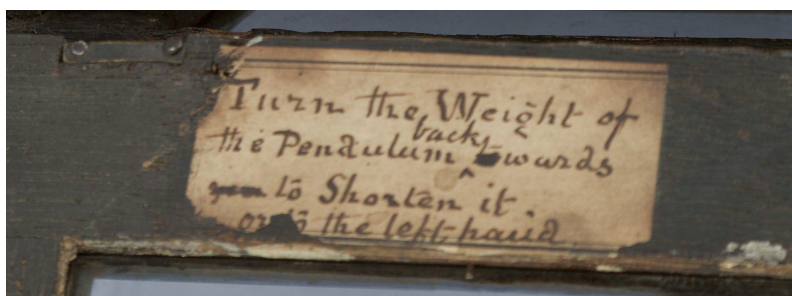 Turn the Weight of
the Pendulum back towards
to Shorten it
or to the left hand